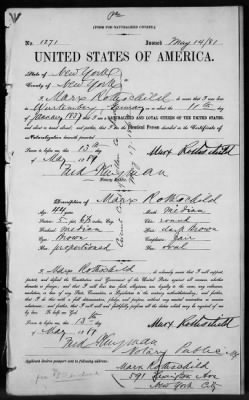 [FORM FOR NATURALIZED CITIZEN.]
No. 1371 Issued May 14/81
UNITED STATES OF AMERICA.
State of New York
County of New York
I, Marx Rothschild do swear that I was born
in Wurtemberg Germany on or about the 11th day
of January 1837; that I am a NATURALIZED AND LOYAL CITIZEN OF THE UNITED STATES,
and about to travel abroad; and further, that I am the Identical Person described in the Certificate of
Naturalization herewith presented.
Sworn to before me this 13th day
of May 1881
Marx Rothschild
Notary Public.
Description of Marx Rothschild
Age: 44 years Mouth: medium
Stature: 5 ft. Chin: round
Forehead: medium Hair: dark brown
Eyes: brown Complexion: fair
Nose: proportioned Face: oval
I, Marx Rothschild do solemnly swear that I will support,
protect, and defend the Constitution and Government of the United States against all enemies, whether
domestic or foreign; and that I will bear true faith, allegiance, and loyalty to the same, any ordinance,
resolution, or law of any State, Convention, or Legislature to the contrary notwithstanding; and further,
that I do this with a full determination, pledge, and purpose, without any mental reservation or evasion
whatsoever; and further, that I will well and faithfully perform all the duties which may be required of me
by law: So help me God.
Sworn to before me this 13th
day of May 1881
Marx Rothschild
Notary Public
Applicant desires passport sent to following address:
Marx Rothschild
591 Lexington Ave
New York City